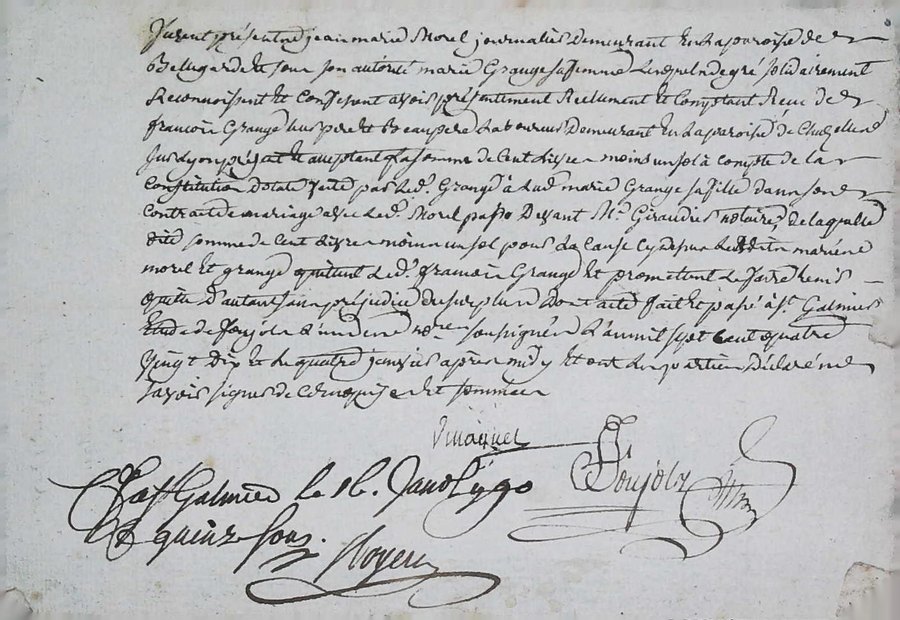 furent présent jean marie Morel journalier Demeurant En La paroisse de
Bellegarde Et sous son autorité marie Grange sa femme Lesquels de gré solidairement
Reconnoissent Et Confessent avoir présentement Reellement Et Comptant Receu de
francois Grange Leur pere et Beaupere Laboureur Demeurant En La paroisse de Chazelles
sur Lyon présent Et acceptant La somme de Cent Livres moins un sol à compte de la
Constitution dotale faite par Led. Grange à Lad. marie Grange sa fille dans son
Contract de mariage avec Led. Morel passé Devant Me. Giraudier notaire, de laquelle
dite somme de Cent Livres moins un sol pour La Cause Cy dessus Les mariés
morel Et grange quittent Led. francois Grange Et promettent Le faire tenir
quitte d'autant sans préjudice du surplus Dont acte fait Et passé à St. Galmier
Etude de Poujols L'un des nores. soussignés L'an mil sept Cent quatre
vingt Dix Et Le quatre janvier après midy Et ont Les parties Déclaré ne
savoir signer de Ce Enquises Et sommées
Poujols
à St Galmier le 16. Janv 1790
quinze sous.